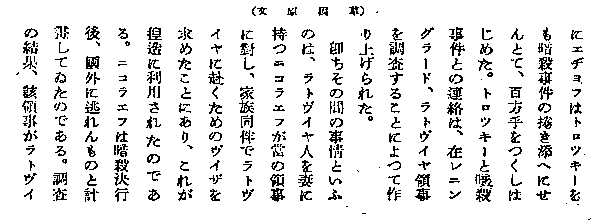 (文原因幕)
にエヂョフはトロツキーを
も暗殺事件の捲き添へにせ
んとて、百方手をつくしは
じめた。トロツキーと暖殺
事件との連絡は、在レニン
グラード、ラトヴイヤ領事
を調査することによつて作
り上げられた。
卽ちその間の事情といふ
のは、ラトヴイヤ人を妻に
持つニコラエフが當の領事
に對し、家族同伴でラトヴ
イヤに赴くためのヴイザを
求めたことにあり、これが
捏造に利用されたのであ
る。ニコラエフは暗殺決行
後、國外に逃れんものと計
畫してゐたのである。調査
の結果、該領事がラトヴイ